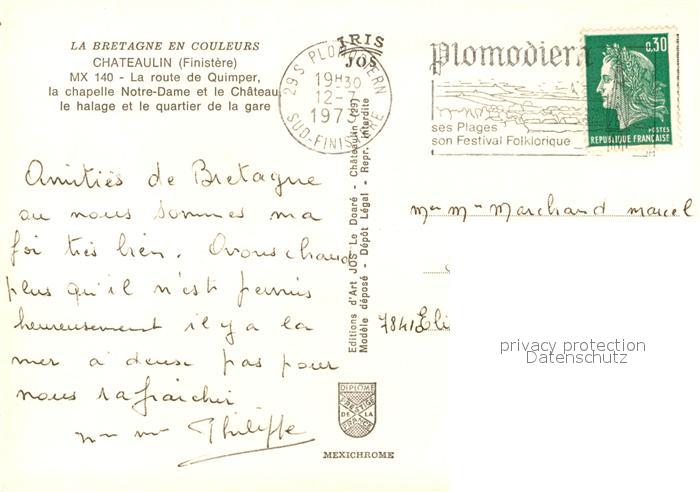 LA BRETAGNE EN COULEURS
CHATEAULIN (Finistère)
MX 140 - La route de Quimper,
la chapelle Notre-Dame et le Château,
le halage et le quartier de la gare
IRIS
JOS
29 S PLOMODIERN
19H30
12-7
1973
SUD-FINISTERE
Plomodiern
ses Plages
son Festival Folklorique
0,30
POSTES
REPUBLIQUE FRANÇAISE
Amitiés de Bretagne
ou nous sommes ma
foi très bien. Avons chaud
plus qu'il n'est permis
heureusement il y a la
mer a deux pas pour
nous rafraichir
Philippe
Editions d'Art JOS Le Doaré - Châteaulin (29)
Modèle déposé - Dépôt Légal - Repr. interdite
Marchand marcel
78410 Eli
privacy protection
Datenschutz
DIPLOME
PRESTIGE
DE LA
FRANCE
MEXICHROME